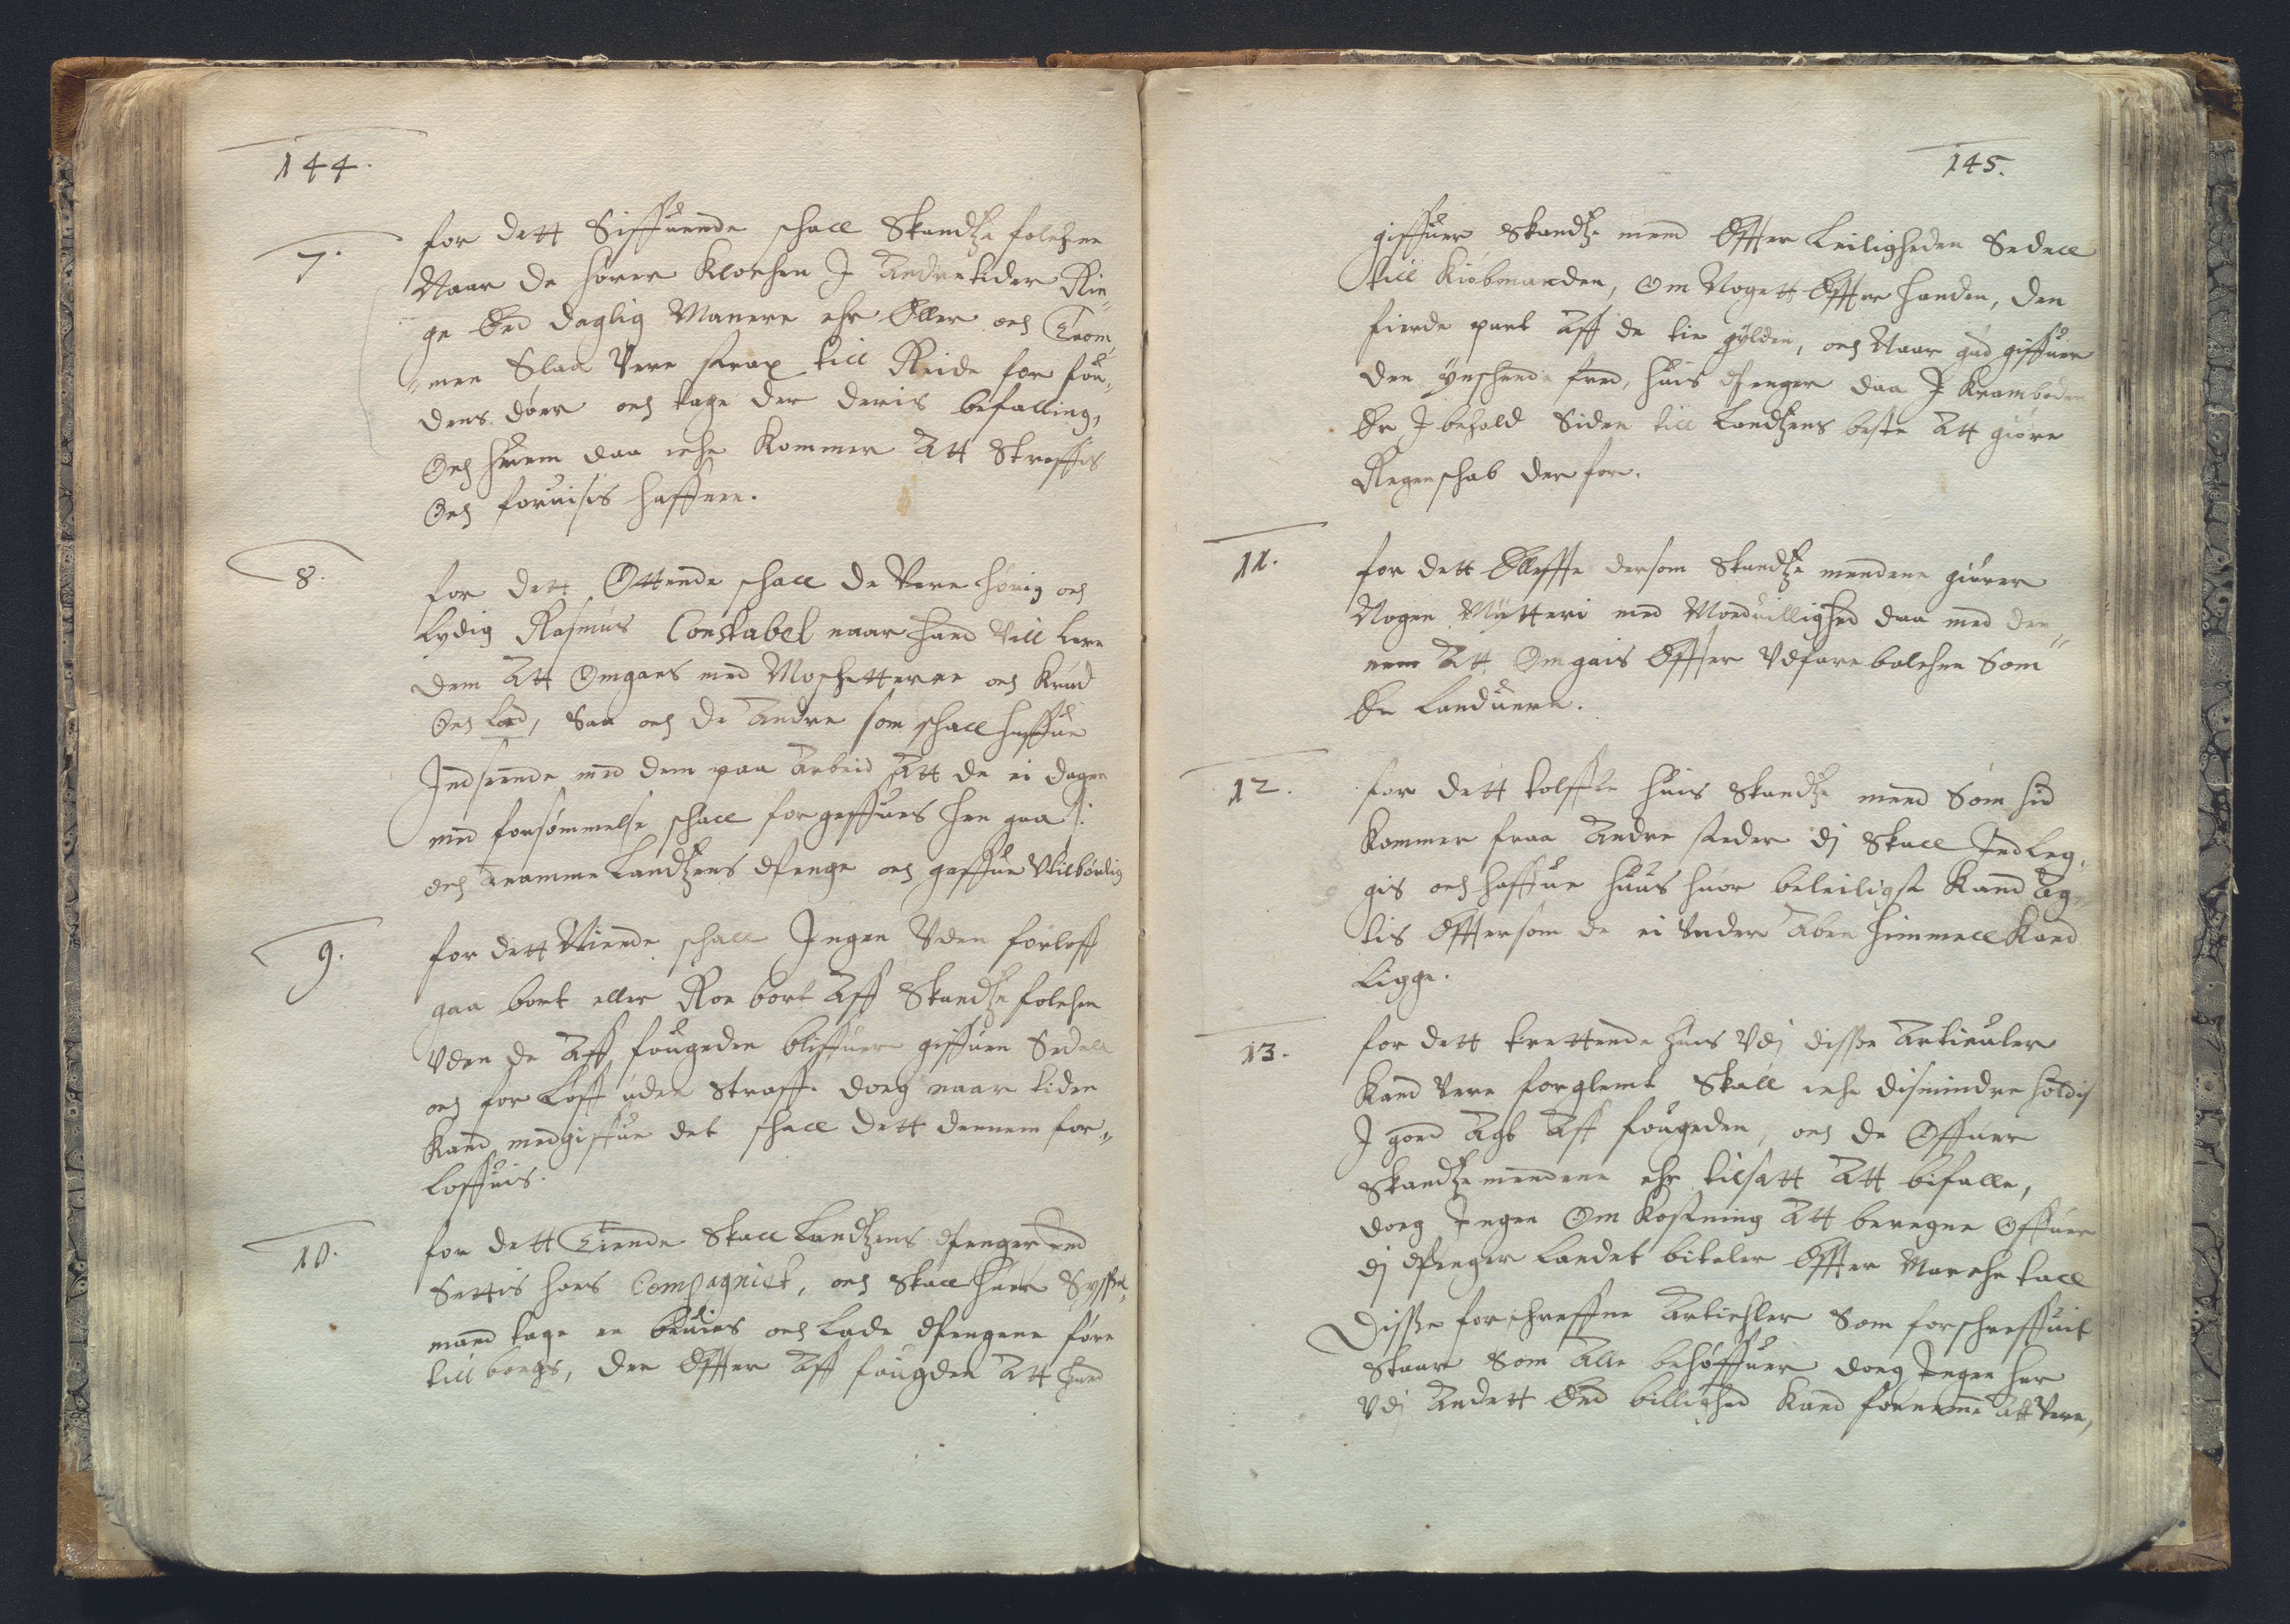 144.
7.
for dett Siffuende schall Skandtze folchene
Naar de hører Klochen J Andre tider Rin-
ge End daglig Manere ehr Eller och Trom,,
,,men Slaa Vere strax till Reide for fou,,
dens dør och tage der deris befalling,
Och huem daa iche kommer Att Straffis
Och foruisis haffnen.
8.
for dett Ottende schall de Vere hørig och
Lydig Rasmus Constabel naar hand Vill lere
dem Att Omgaes med Moschetterne och Krud
Och Lod, Saa och de Andre som schall haffue
Indseende med dem paa Arbeid Att de ei dagen
med forsømmelse schall forgeffues hen gaa :
och anamme Landtzens Penge och gaffue Vtilbørlig
9.
for dett Niende schall Jngen Vden forloff
gaa bort eller Roe bort Aff Skandtze folchen
Vden de Aff fougeden bliffuer giffuen Sedell
och for Loff uden Straff. doeg naar tiden
Kand medgiffue det schall dett dennem for,,
loffuis.
10.
for dett Tiende Skall Landtzens Penger ind
Settis hoes Compagniet, och Skall huer Syssel,,
mand tage en beuies och Lade Pengene føre
till boegs, der Effter Aff fougden Att hand
145.
giffuer Skandtze mend Effter Leiligheden Sedell
till Kiøbmanden, Om Nogett Effter handen, den
fierde part Aff de tie gylden, och Naar gud giffuer
den ynschende fred, huis Penger daa J Kramboden
Er J behold Siden till Landtzens beste Att giøre
Regenschab der for.
11.
for dett Elleffte dersom Skandtze mendene giører
Nogen Mytteri med Moduillighed daa med den,,
nem Att Omgais Effter Vdfare bolchen Som
Er Landuern.
12.
for dett tolffte huis Skandtze mend Som hid
kommer fraa Andre steder dj Skall Jndleg,,
gis och haffue huus huor beleiligst Kand Ag,,
tis Efftersom de ei Vnder Aben himmell Kand
Ligge.
13.
for dett trettende huis Vdj disse Articuler
Kand Vere forglemt Skall iche dismindre holdis
J goed Agt Aff fougeden, och de Offuer
Skandtzemendene ehr tilsatt Att bifalle,
doeg Jngen Om Kostning Att beregne Offuer
dj Penger Landet bitaler Effter Marche tall
Disse forschreffne Artichler Som forschreffuit
Staar Som Alle behøffuer doeg Jngen her
Vdj Andett End billighed Kand fornemme Att Vere,